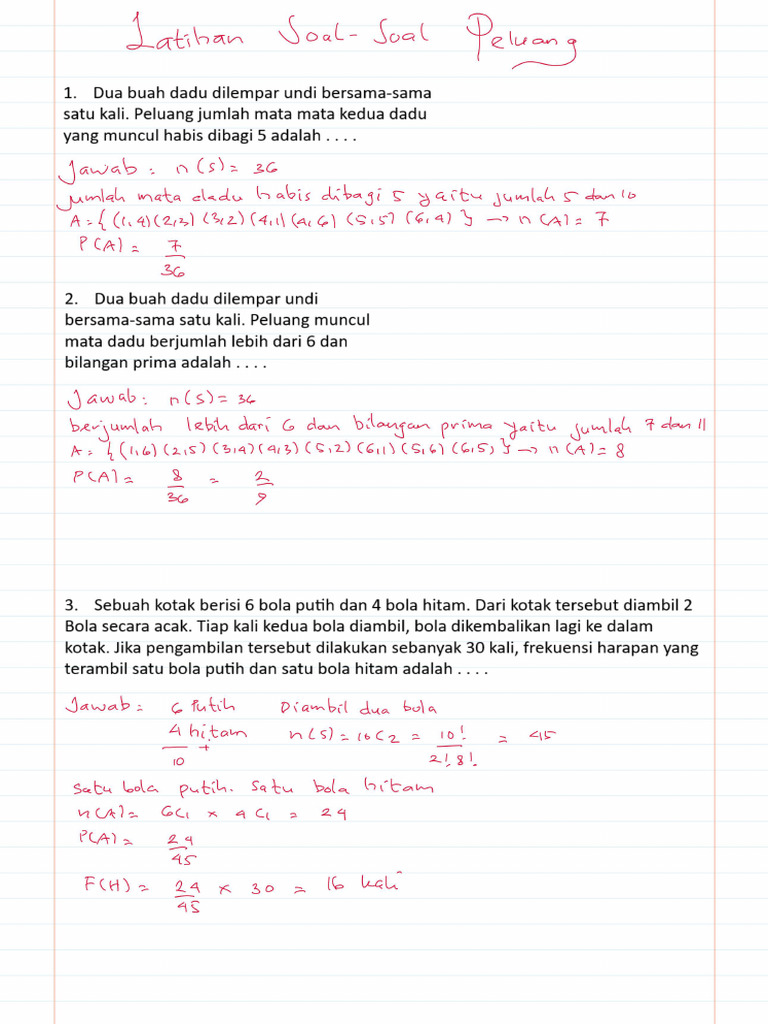 Latihan Soal-Soal Peluang
1. Dua buah dadu dilempar undi bersama-sama
satu kali. Peluang jumlah mata mata kedua dadu
yang muncul habis dibagi 5 adalah . . . .
Jawab : n(S) = 36
jumlah mata dadu habis dibagi 5 yaitu jumlah 5 dan 10
A = { (1,4) (2,3) (3,2) (4,1) (4,6) (5,5) (6,4) } → n(A) = 7
P(A) = 7/36
2. Dua buah dadu dilempar undi
bersama-sama satu kali. Peluang muncul
mata dadu berjumlah lebih dari 6 dan
bilangan prima adalah . . . .
Jawab : n(S) = 36
berjumlah lebih dari 6 dan bilangan prima yaitu jumlah 7 dan 11
A = { (1,6) (2,5) (3,4) (4,3) (5,2) (6,1) (5,6) (6,5) } → n(A) = 8
P(A) = 8/36 = 2/9
3. Sebuah kotak berisi 6 bola putih dan 4 bola hitam. Dari kotak tersebut diambil 2
Bola secara acak. Tiap kali kedua bola diambil, bola dikembalikan lagi ke dalam
kotak. Jika pengambilan tersebut dilakukan sebanyak 30 kali, frekuensi harapan yang
terambil satu bola putih dan satu bola hitam adalah . . . .
Jawab : 6 Putih Diambil dua bola
4 hitam + n(S) = 10C2 = 10!/2!.8!. = 45
10
Satu bola putih. Satu bola hitam
n(A) = 6C1 x 4C1 = 24
P(A) = 24/45
F(H) = 24/45 x 30 = 16 kali